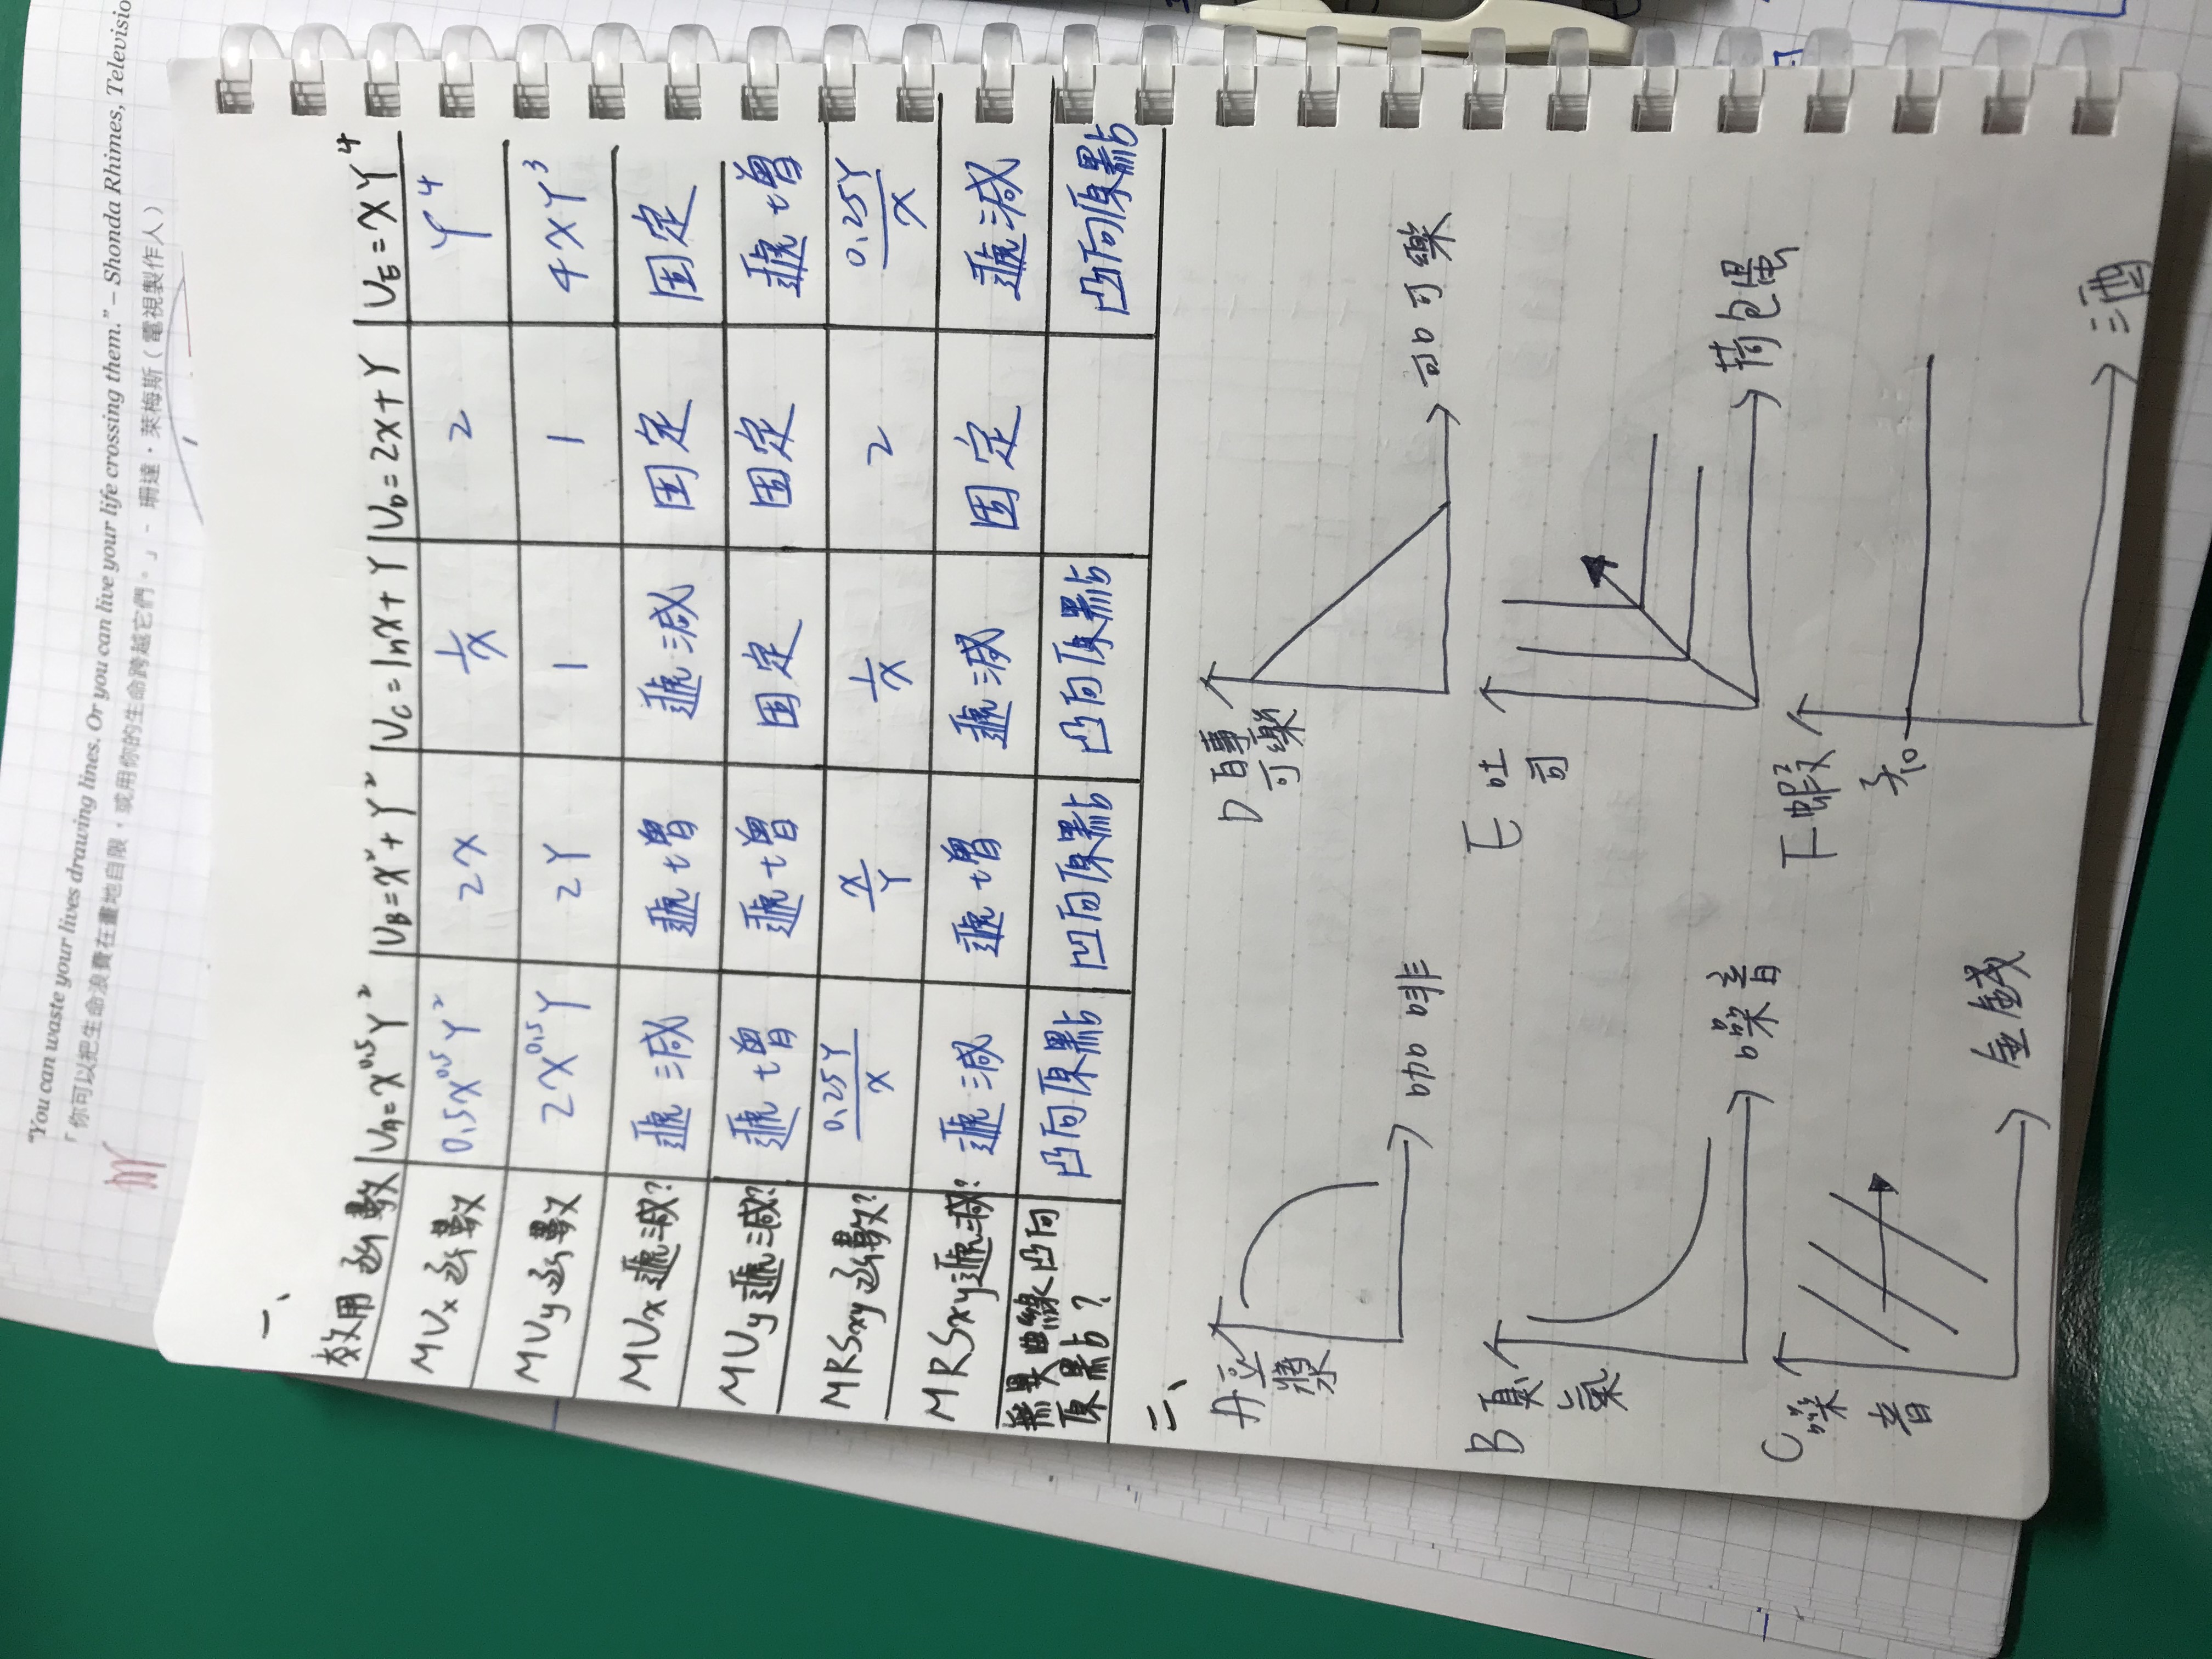 "You can waste your lives drawing lines. Or you can live your life crossing them." – Shonda Rhimes, Televisio
「你可以把生命浪費在畫地自限，或用你的生命跨越它們。」- 珊達·萊梅斯（電視製作人）
一、
效用函數 U_A=X^0.5 Y^2 U_B=X^2+Y^2 U_C=lnX+Y U_D=2X+Y U_E=XY^4
MUx函數 0.5X^0.5 Y^2 2X 1/X 2 Y^4
MUy函數 2X^0.5 Y 2Y 1 1 4XY^3
MUx遞減? 遞減 遞增 遞減 固定 固定
MUy遞減? 遞增 遞增 固定 固定 遞增
MRSxy函數? 0.25Y/X X/Y 1/X 2 0.25Y/X
MRSxy遞減? 遞減 遞增 遞減 固定 遞減
無異曲線凸向
原點? 凸向原點 凹向原點 凸向原點 凸向原點
二、
A 豆漿
咖啡
D 百事
可樂
可口可樂
B 臭氣
噪音
E 吐司
荷包蛋
C 噪音
金錢
F 蝦子
10
酒